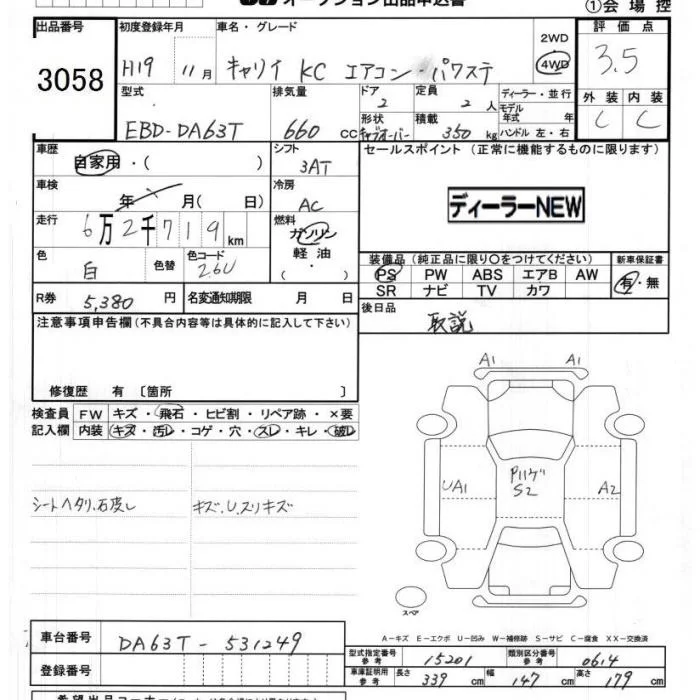 オークション出品申込書
①会場控
出品番号 初度登録年月 車名・グレード 評価点
3058
H19 11月 キャリイ KC エアコン・パワステ 2WD 4WD 3.5
型式 排気量 ドア 定員 ディーラー・並行 外装 内装
EBD-DA63T 660cc 2 2人 モデル年式 年 C C
形状 積載 ハンドル 左・右
キャブオーバー 350kg
車歴 シフト セールスポイント (正常に機能するものに限ります)
自家用・( ) 3AT
車検 冷房
年 月(日) AC
ディーラーNEW
走行 燃料
6万2千719km ガソリン
軽油
( ・ )
色 色替 色コード
白 26U
装備品(純正品に限り○をつけてください) 新車保証書
PS PW ABS エアB AW 有・無
SR ナビ TV カワ
R券 5,380円 名変通知期限 月 日
後日品
取説
注意事項申告欄(不具合内容等は具体的に記入して下さい)
修復歴 有 〔箇所 〕
検査員 FW キズ・飛石・ヒビ割・リペア跡・×要
記入欄 内装 キズ・汚レ・コゲ・穴・スレ・キレ・破レ
シートヘタリ, キズ.U.スリキズ
A1 A1
UA1 S2 A2
スペア
A−キズ E−エクボ U−凹み W−補修跡 S−サビ C−腐食 XX−交換済
車台番号 DA63T-531249
型式指定番号 参考 15201 類別区分番号 参考 0614
登録番号
車庫証明用 参考 長さ 339cm 幅 147cm 高さ 179cm
希望出品コーナー